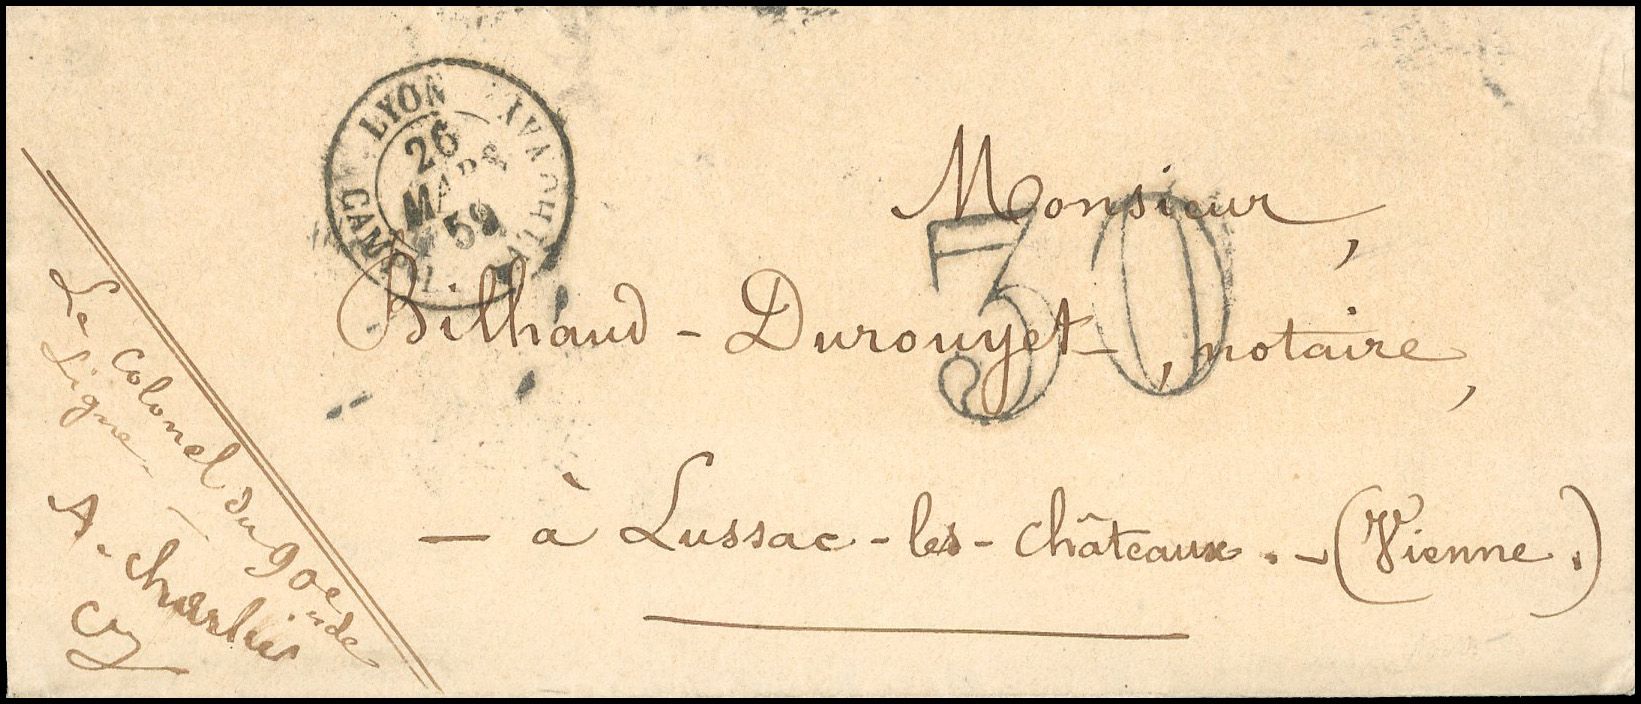 LYON
CAMP
26
MARS
59
30
Monsieur,
Bilhaud - Durouyet, notaire,
- à Lussac - les - châteaux. - (Vienne.)
Le Colonel du 90e de
Ligne
A. Charlier